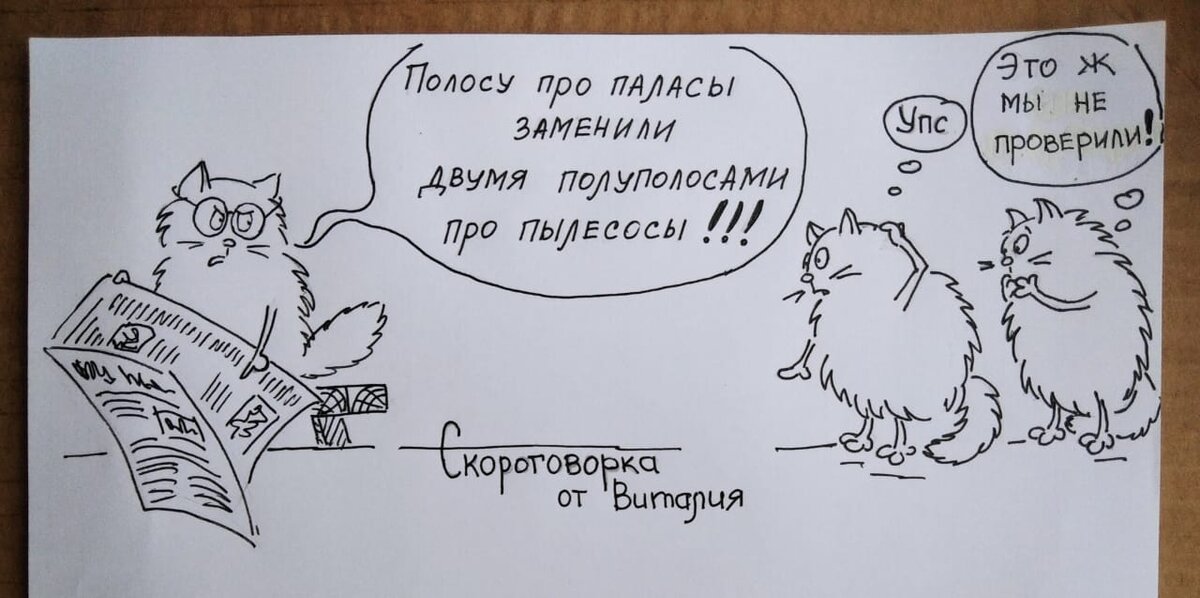 Полосу про паласы
заменили
двумя полуполосами
про пылесосы!!!
Упс
Это ж
мы не
проверили!
Скороговорка
от Виталия